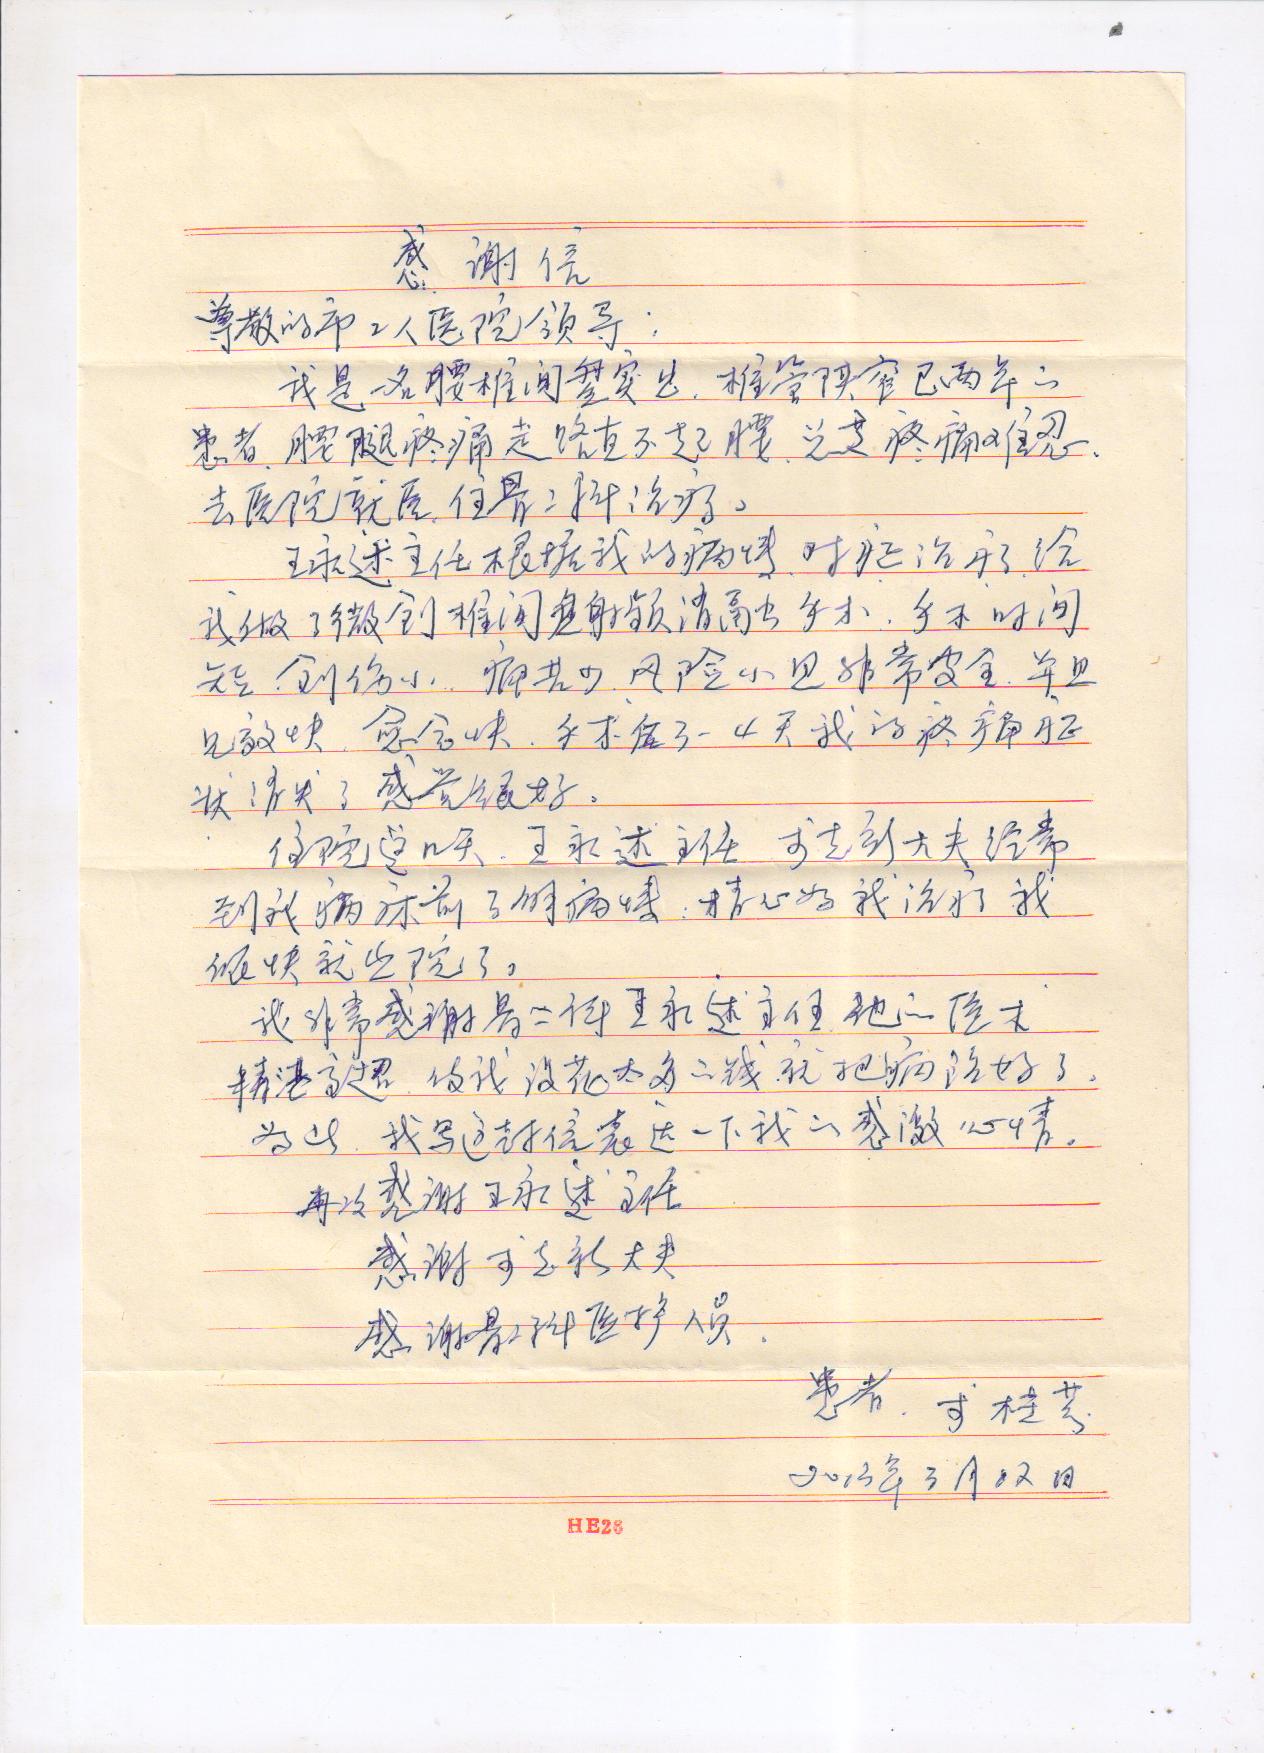 感谢信
尊敬的市工人医院领导：
我是一名腰椎间盘突出、椎管狭窄已两年的
患者、腰腿疼痛走路直不起腰、总是疼痛难忍、
去医院就医、住骨二科治疗。
王永述主任根据我的病情、对症治疗、给
我做了微创椎间盘射频消融术手术、手术时间
短、创伤小、痛苦少、风险小且非常安全、并且
见效快、愈合快、手术后3-4天我的疼痛症
状消失了感觉很好。
住院这几天、王永述主任、于志新大夫经常
到我病床前了解病情、精心为我治疗我
很快就出院了。
我非常感谢骨二科王永述主任、他的医术
精湛高超、使我没花太多的钱、就把病治好了、
为此、我写这封信表达一下我的感激心情。
再次感谢王永述主任
感谢于志新大夫
感谢骨二科医护人员、
患者、于桂芬
2013年3月22日
HE26